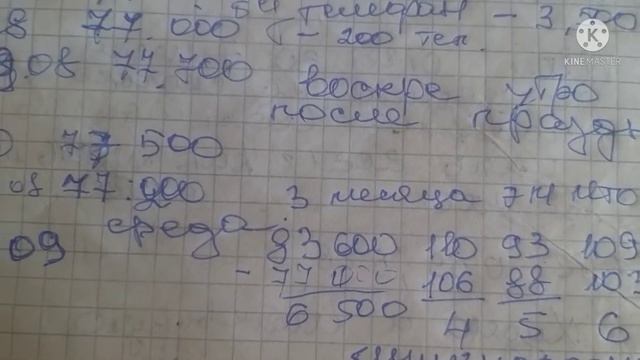 8 77.000 Телефан - 3,500
- 200 тел.
KINEMASTER
08 77.700 воскре утро
после празд
77 500
08 77.900 3 месяца 7 н что
09 среда
83 600 110 93 109
- 77 106 88 103
6 500 4 5 6